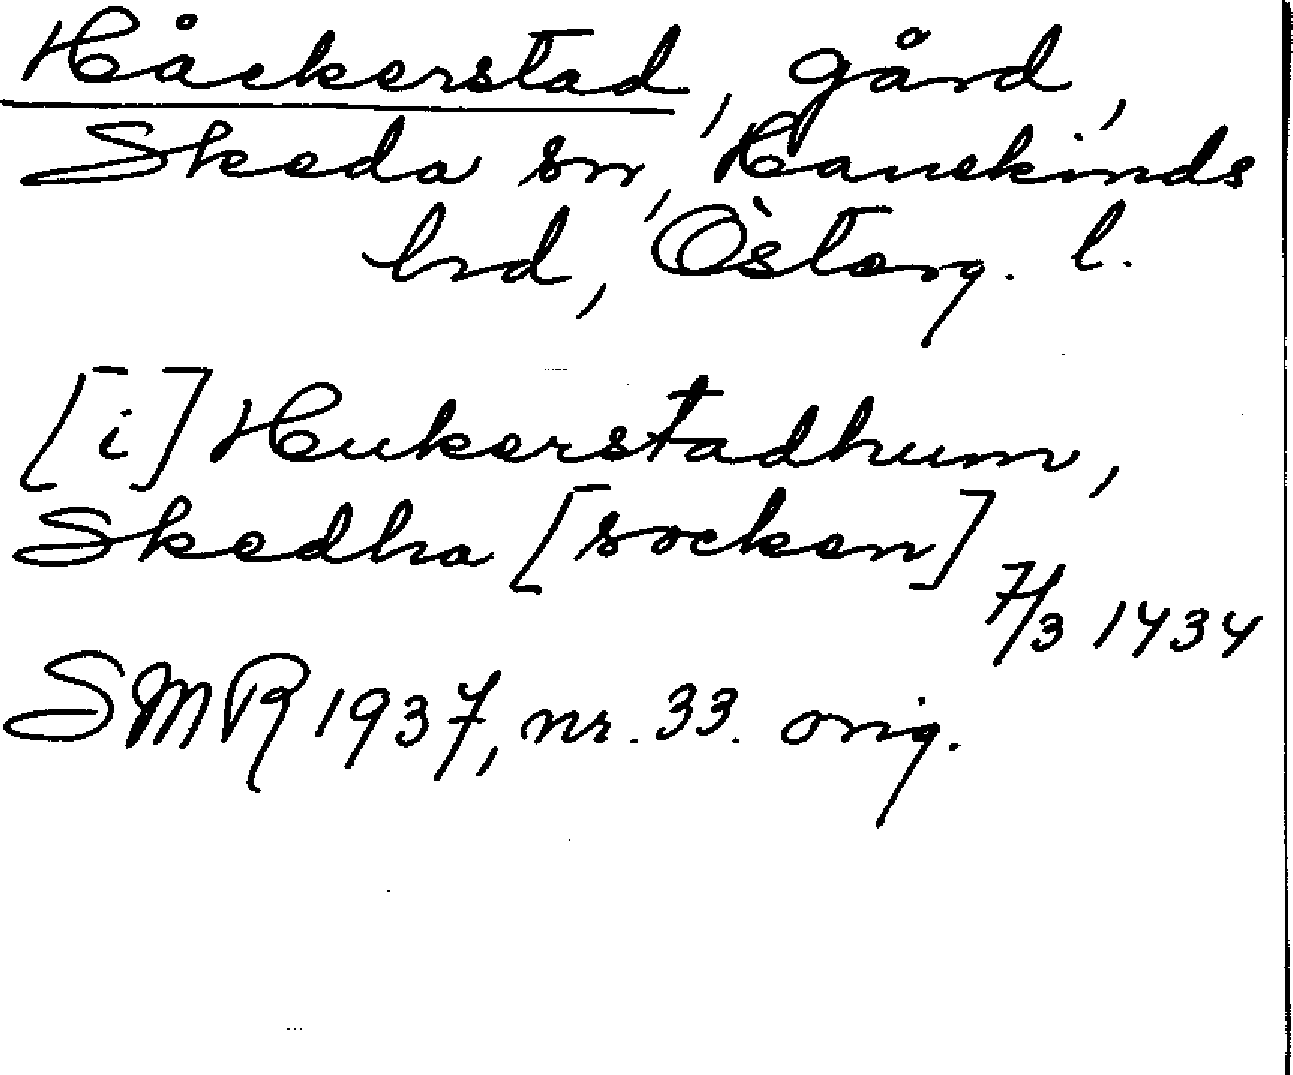 Håckerstad, gård,
Skeda sn, Hanekinds
hd, Österg. l.
[i] Hukerstadhum,
Skedha [socken]
7/3 1434
SMR 1937, nr. 33. orig.